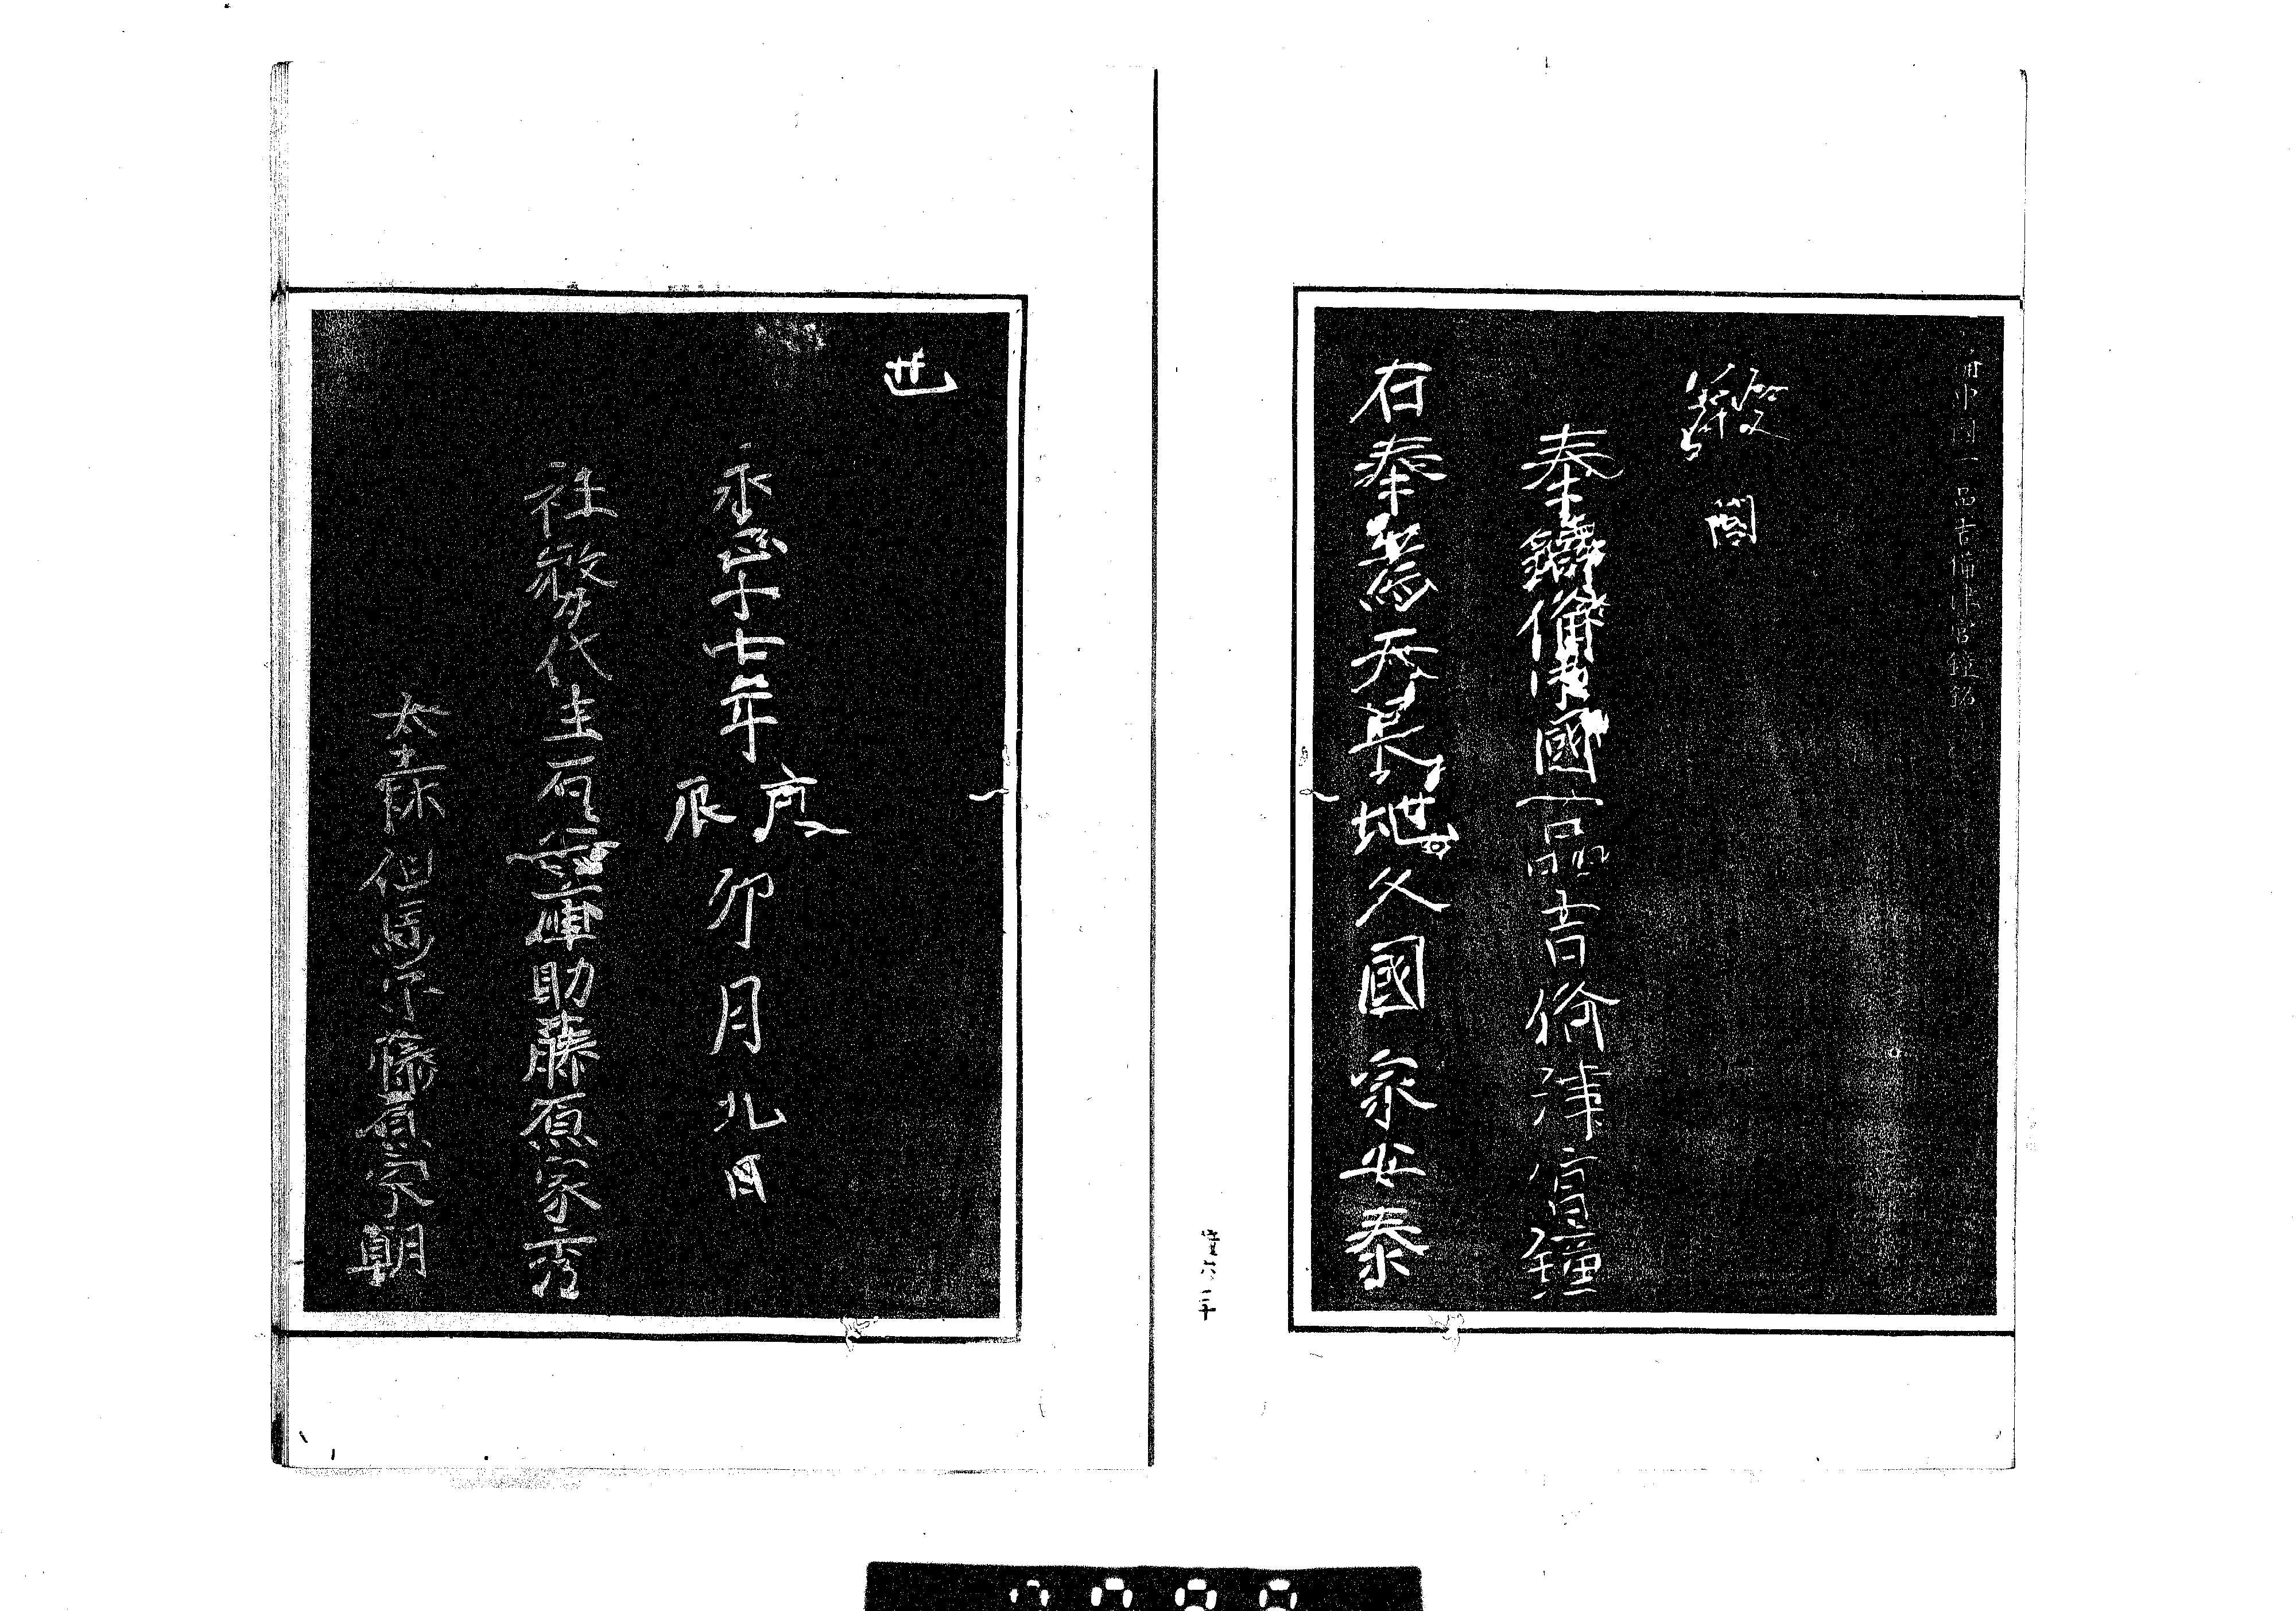 備中國一品吉備津宮鐘銘
閣
奉鑄備中國一品吉備津宮鐘
右奉爲天長地久國家安泰
也
永正十七年庚辰卯月九日
社務代主石兵庫助藤原家秀
大森但馬守藤原宗朝